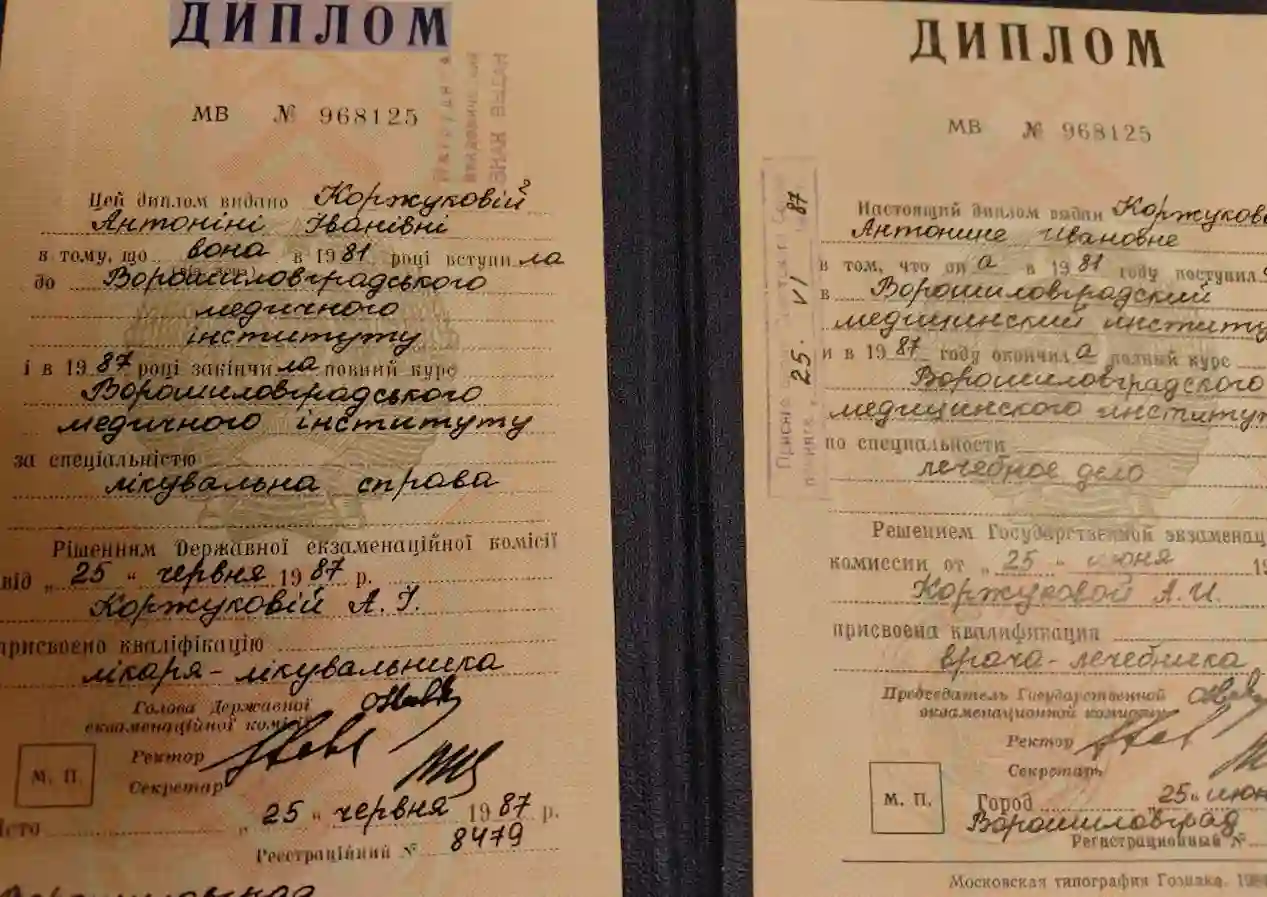 ДИПЛОМ
МВ № 968125
Нагрудний
академический
ЗНАК ВЫДАН
Цей диплом видано Коржуковій
Антоніні Іванівні
в тому, що вона в 1981 році вступила
до Ворошиловградського
медичного
інституту
і в 1987 році закінчила повний курс
Ворошиловградського
медичного інституту
за спеціальністю
лікувальна справа
Рішенням Державної екзаменаційної комісії
від „ 25 “ червня 1987 р.
Коржуковій А. І.
присвоєно кваліфікацію
лікаря-лікувальника
Голова Державної
екзаменаційної комісії
Ректор
Секретар
М. П.
„ 25 “ червня 1987 р.
Місто
Реєстраційний № 8479
Ворошиловград
ДИПЛОМ
МВ № 968125
25. VI 87
Настоящий диплом выдан Коржуково
Антонине Ивановне
в том, что она в 1981 году поступил
в Ворошиловградский
медицинский институт
и в 1987 году окончила полный курс
Ворошиловградского
медицинского институт
по специальности
лечебное дело
Решением Государственной экзаменац
комиссии от „ 25 “ июня 19
Коржуковой А. И.
присвоена квалификация
врача-лечебника
Председатель Государственной
экзаменационной комиссии
Ректор
Секретарь
М. П.
Город „ 25 “ июн
Ворошиловград
Регистрационный №
Московская типография Гознака. 198